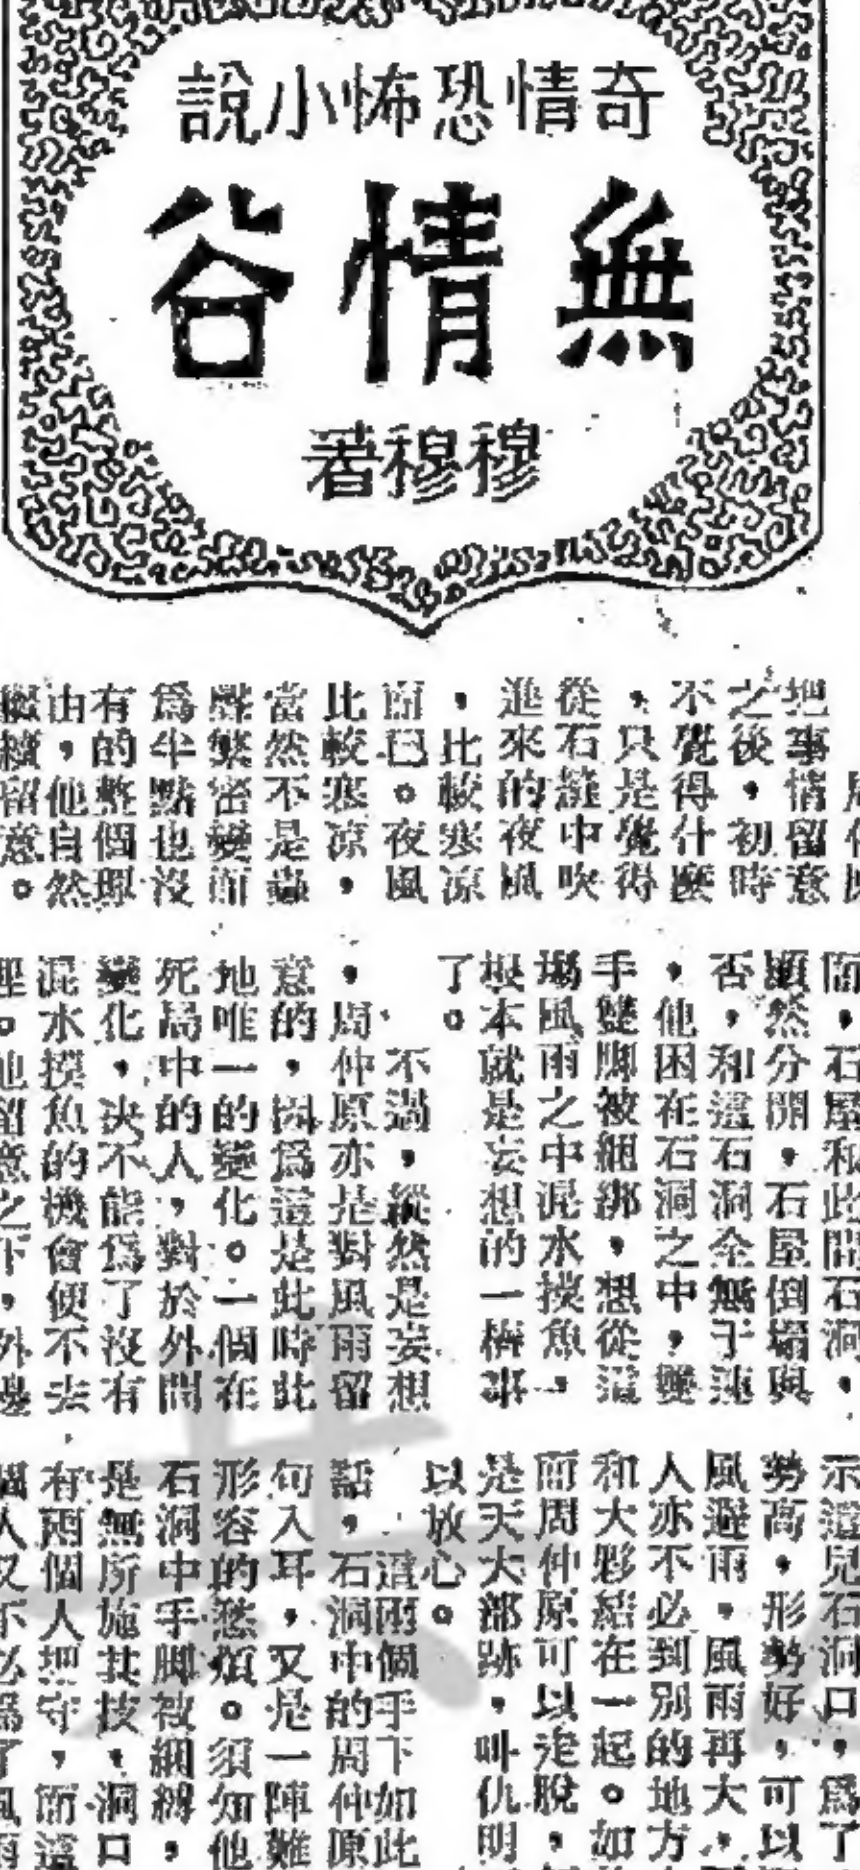 奇情恐怖小說
無情谷
穆穆著
把事情留意
之後，初時
不覺得什麼
，只是覺得
從石縫中吹
進來的夜風
，比較寒凉
而已。夜風
比較寒凉，
當然不是蟲
聲繁密變而
為半點也沒
有的整個環
由，他自然
繼續留意。
而，石屋和此間石洞，
顯然分開，石屋倒塌與
否，和這石洞全無干連
，他困在石洞之中，雙
手雙脚被綑綁，想從這
場風雨之中混水摸魚，
根本就是妄想的一樁事
了。
不過，縱然是妄想
，周仲原亦是對風雨留
意的，因為這是此時此
地唯一的變化。一個在
死局中的人，對於外間
變化，決不能為了沒有
混水摸魚的機會便不去
理。他留意之下，外邊
示這兒石洞口，為了
勢高，形勢好，可以
風避雨，風雨再大，
人亦不必到別的地方
和大夥結在一起。如
而周仲原可以走脫，
是天大部跡，叫仇明
以放心。
這兩個手下如此
話，石洞中的周仲原
句入耳，又是一陣難
形容的愁煩。須知他
石洞中手脚被綑綁，
是無所施其技，洞口
有兩個人把守，而這
個人又不必為了風雨